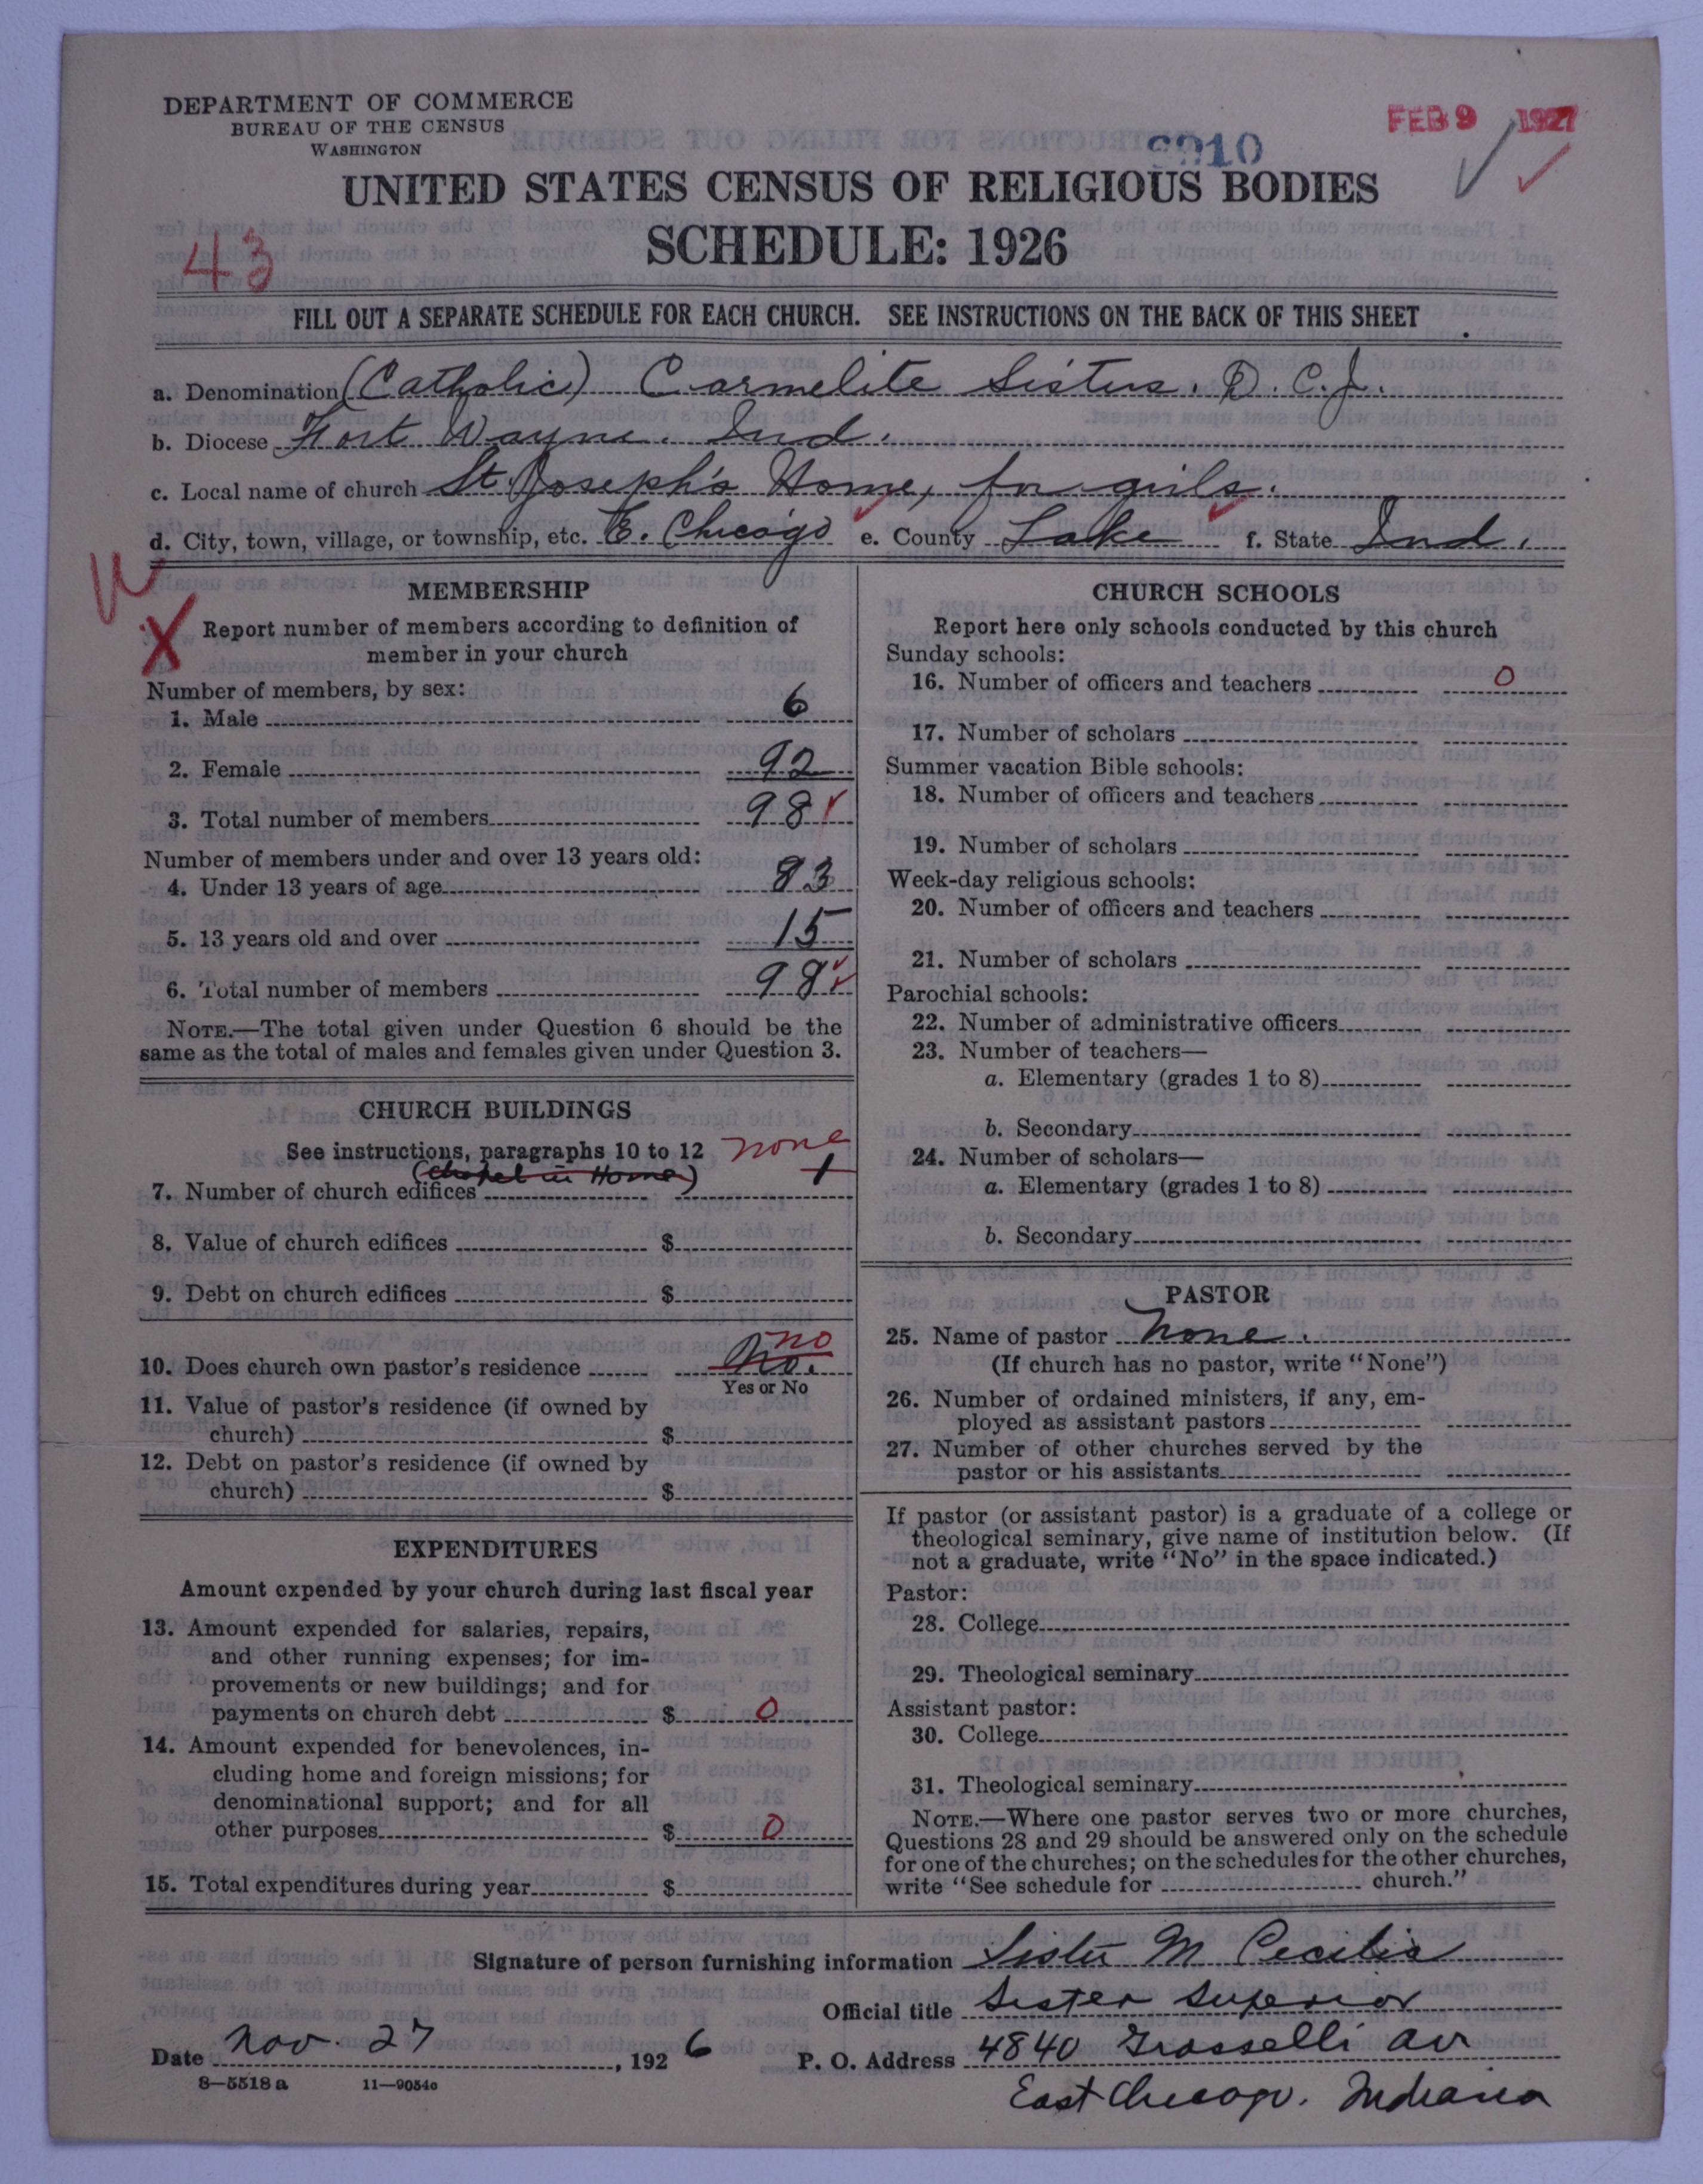 DEPARTMENT OF COMMERCE
BUREAU OF THE CENSUS
WASHINGTON
FEB 9 1927
UNITED STATES CENSUS OF RELIGIOUS BODIES
SCHEDULE: 1926
43
FILL OUT A SEPARATE SCHEDULE FOR EACH CHURCH. SEE INSTRUCTIONS ON THE BACK OF THIS SHEET
a. Denomination (Catholic) Carmelite Sisters. D. C. J.
b. Diocese Fort Wayne. Ind.
c. Local name of church St. Joseph's Home, for girls.
d. City, town, village, or township, etc. E. Chicago e. County Lake f. State Ind.
MEMBERSHIP
X
Report number of members according to definition of
member in your church
Number of members, by sex:
1. Male 6
2. Female 92
3. Total number of members 98
Number of members under and over 13 years old:
4. Under 13 years of age 83
5. 13 years old and over 15
6. Total number of members 98
NOTE.—The total given under Question 6 should be the
same as the total of males and females given under Question 3.
CHURCH BUILDINGS
See instructions, paragraphs 10 to 12 none
(Chapel in Home) 1
7. Number of church edifices
8. Value of church edifices $
9. Debt on church edifices $
no
10. Does church own pastor's residence No.
Yes or No
11. Value of pastor's residence (if owned by
church) $
12. Debt on pastor's residence (if owned by
church) $
EXPENDITURES
Amount expended by your church during last fiscal year
13. Amount expended for salaries, repairs,
and other running expenses; for im-
provements or new buildings; and for
payments on church debt $ 0
14. Amount expended for benevolences, in-
cluding home and foreign missions; for
denominational support; and for all
other purposes $ 0
15. Total expenditures during year $
CHURCH SCHOOLS
Report here only schools conducted by this church
Sunday schools:
16. Number of officers and teachers 0
17. Number of scholars
Summer vacation Bible schools:
18. Number of officers and teachers
19. Number of scholars
Week-day religious schools:
20. Number of officers and teachers
21. Number of scholars
Parochial schools:
22. Number of administrative officers
23. Number of teachers—
a. Elementary (grades 1 to 8)
b. Secondary
24. Number of scholars—
a. Elementary (grades 1 to 8)
b. Secondary
PASTOR
25. Name of pastor None.
(If church has no pastor, write "None")
26. Number of ordained ministers, if any, em-
ployed as assistant pastors
27. Number of other churches served by the
pastor or his assistants
If pastor (or assistant pastor) is a graduate of a college or
theological seminary, give name of institution below. (If
not a graduate, write "No" in the space indicated.)
Pastor:
28. College
29. Theological seminary
Assistant pastor:
30. College
31. Theological seminary
NOTE.—Where one pastor serves two or more churches,
Questions 28 and 29 should be answered only on the schedule
for one of the churches; on the schedules for the other churches,
write "See schedule for church."
Signature of person furnishing information Sister M Cecilia
Official title Sister Superior
Date Nov. 27, 1926 P. O. Address 4840 Grasselli av
8—5518 a 11—9054c
East Chicago. Indiana